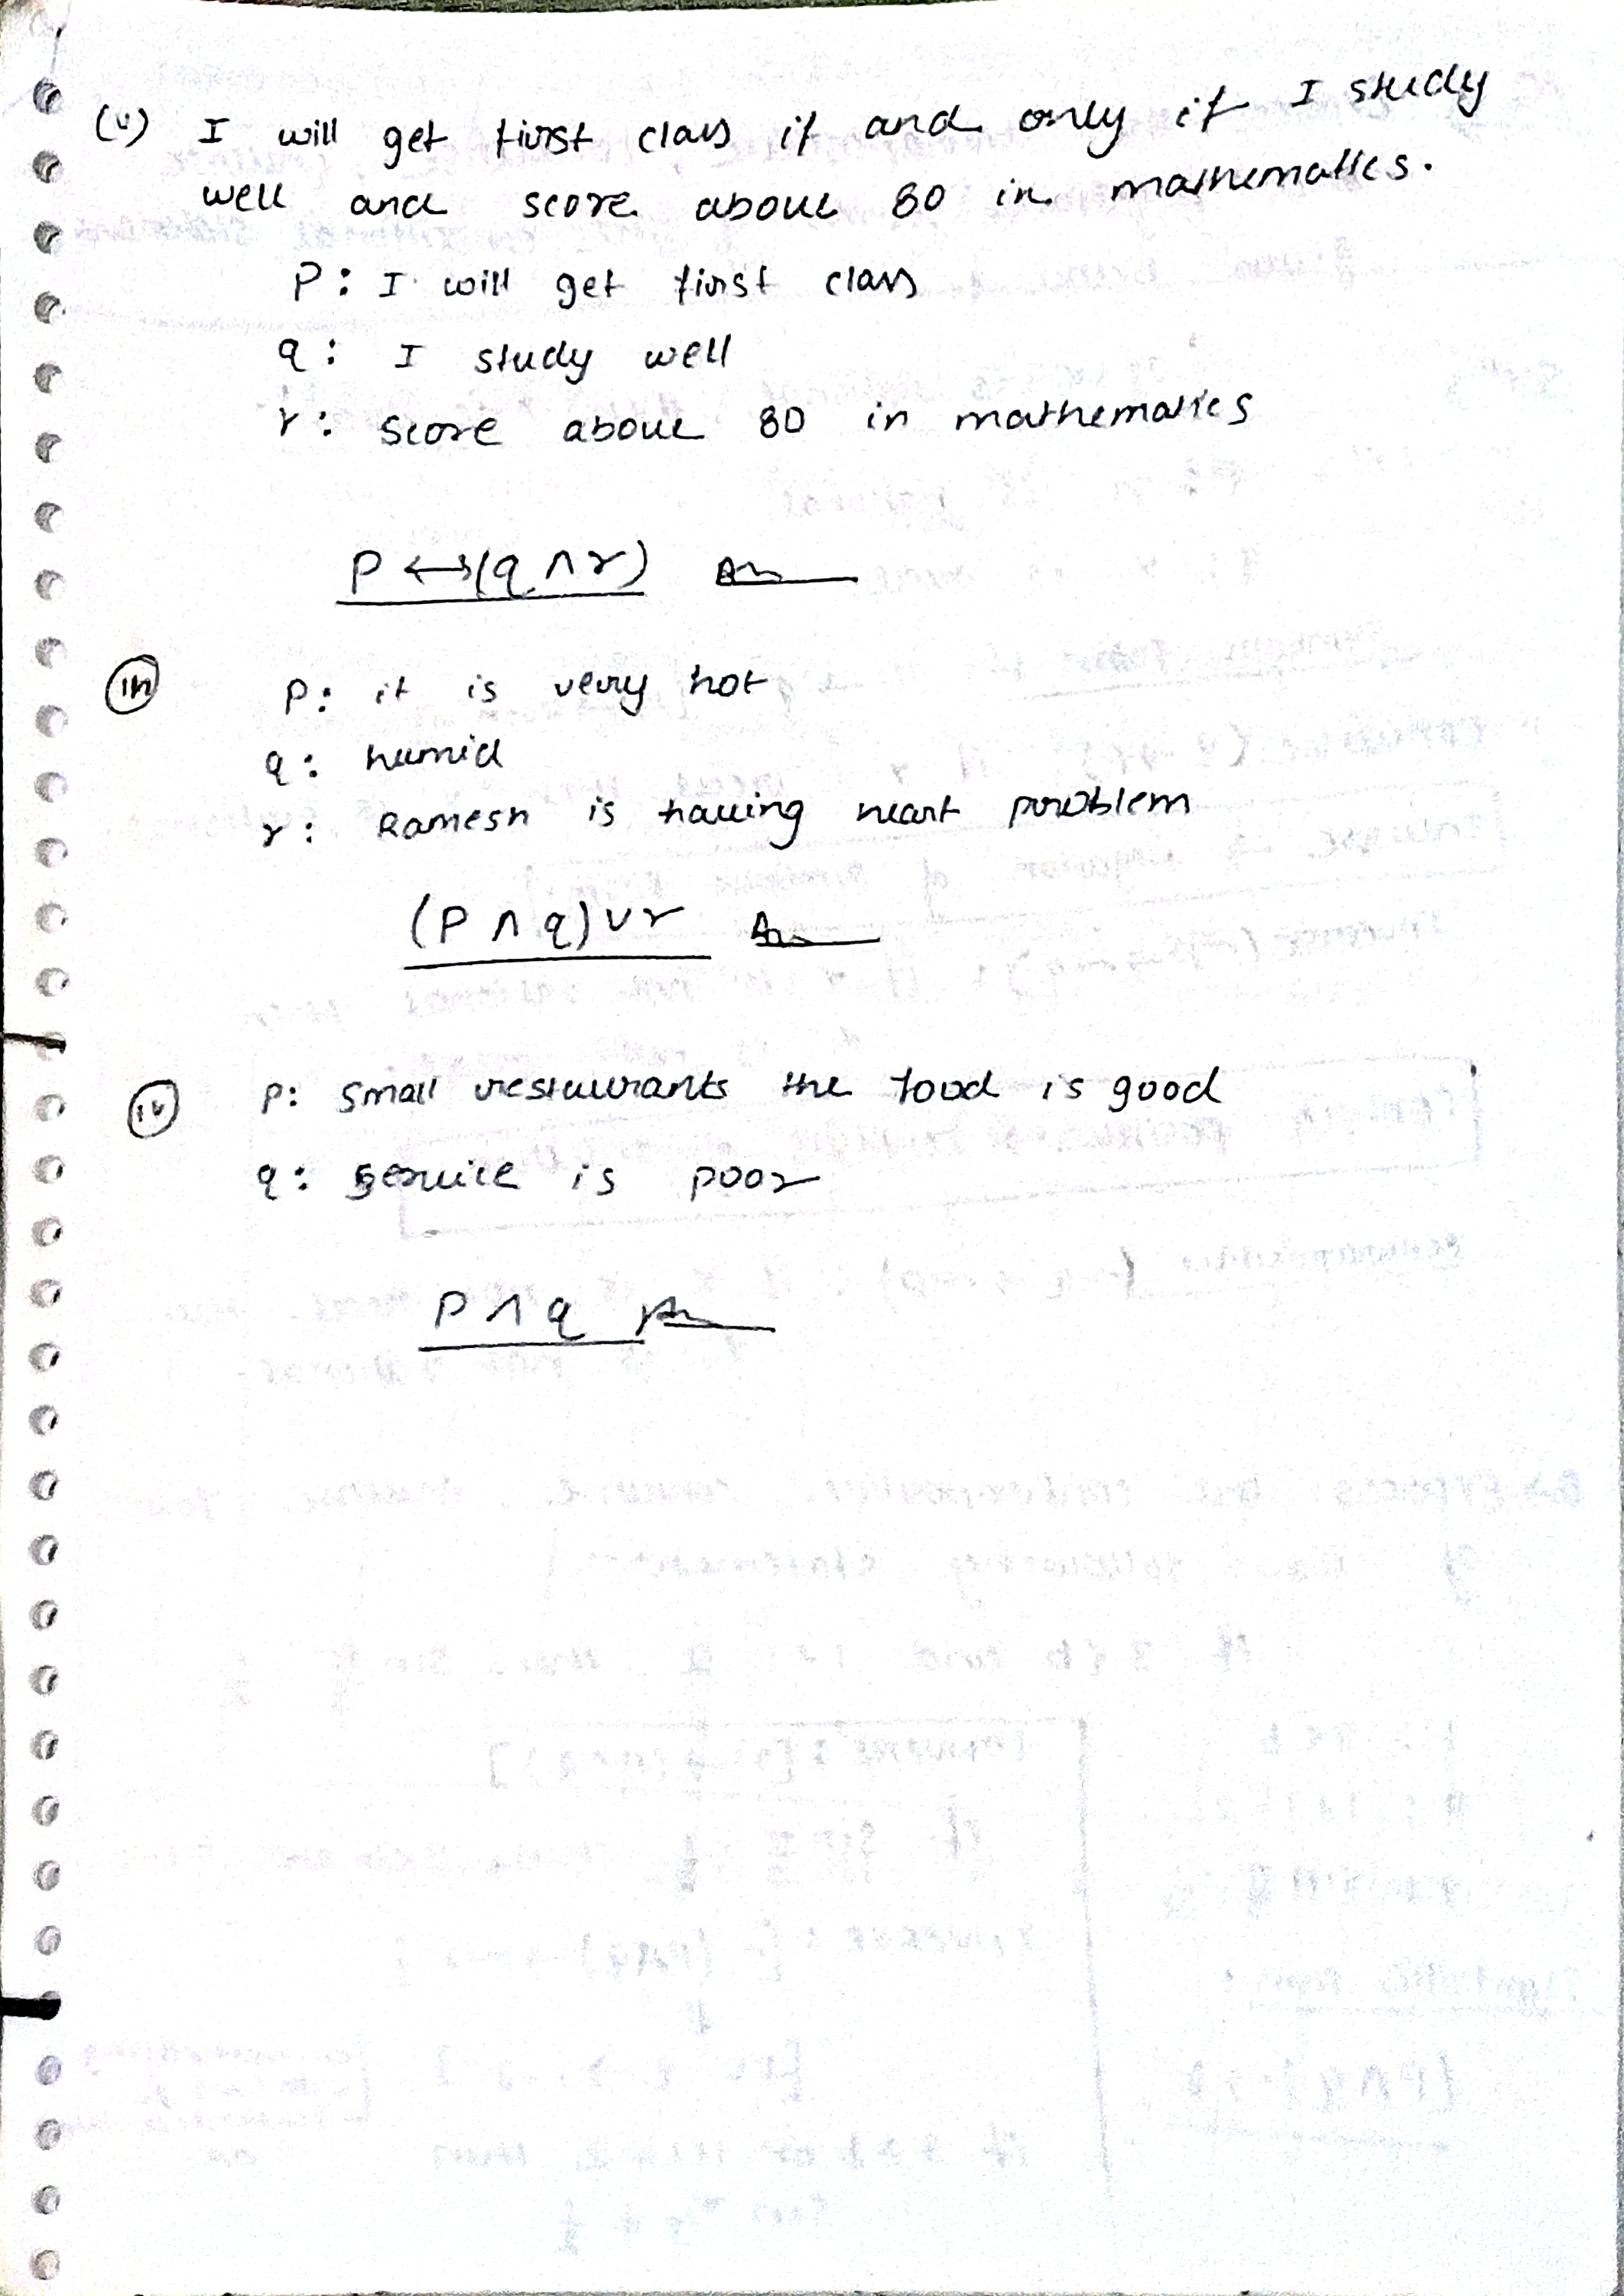 (v) I will get first class if and only if I study
well and score above 80 in mathematics.
P: I will get first class
q: I study well
r: Score above 80 in mathematics
P ↔ (q ∧ r) Ans
(iii) P: it is very hot
q: humid
r: Ramesh is having heart problem
(P ∧ q) ∨ r Ans
(iv) P: Small restaurants the food is good
q: service is poor
P ∧ q Ans